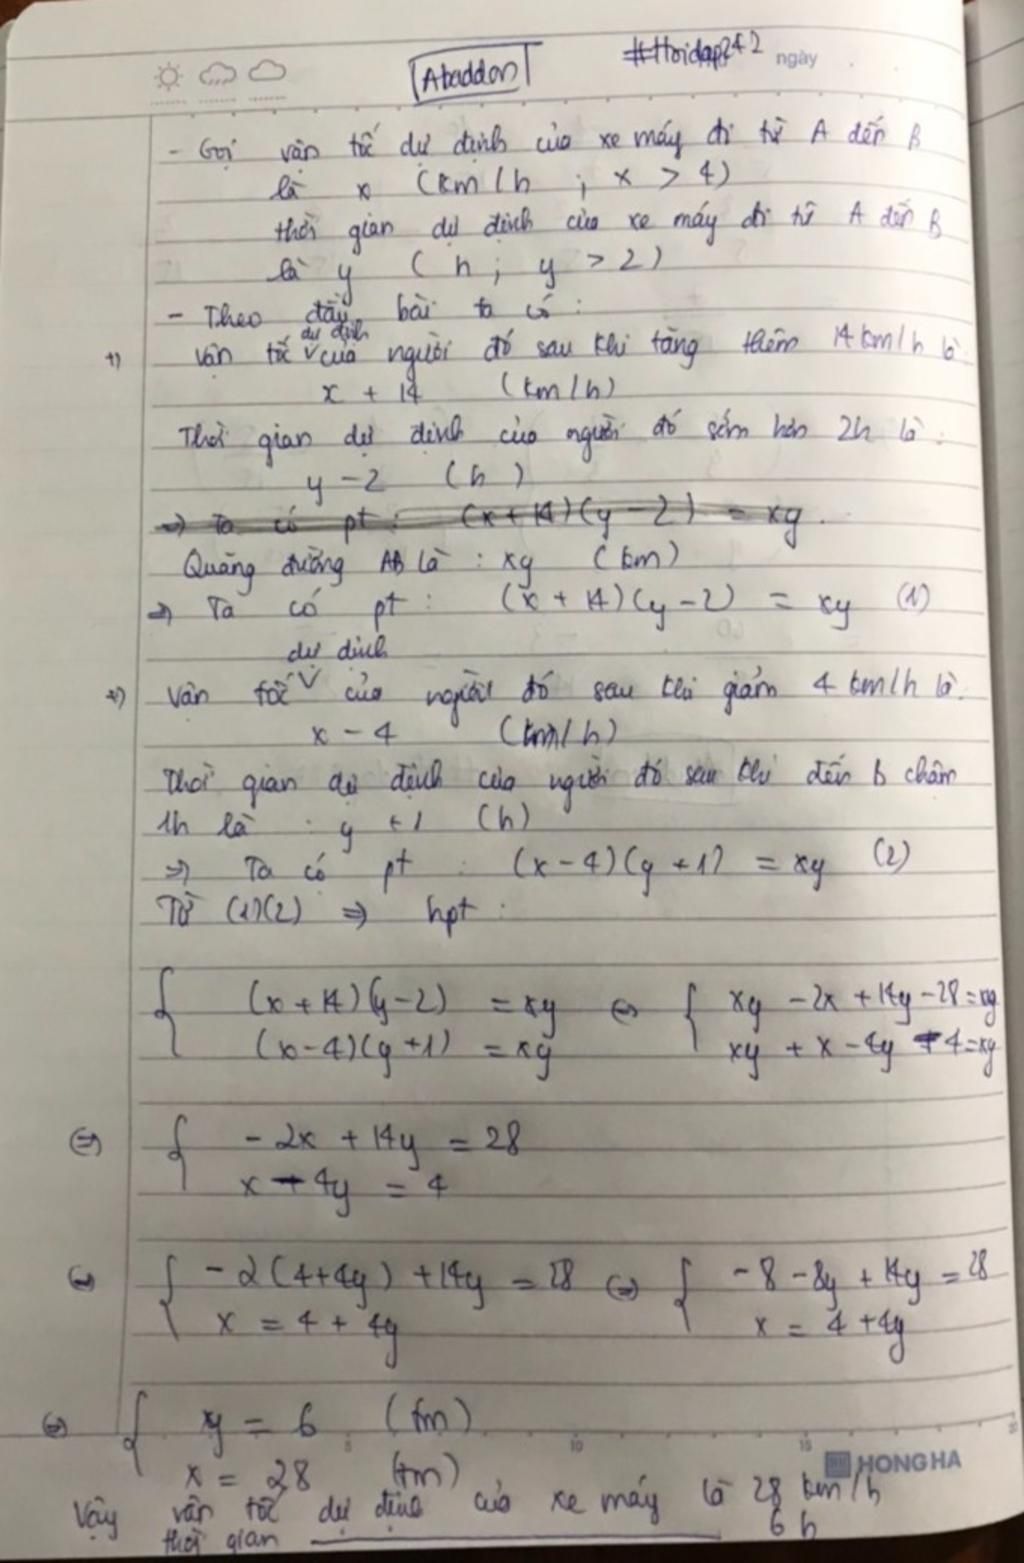 Abaddon
#Hoidap247
ngày
- Gọi vận tốc dự định của xe máy đi từ A đến B
là x (km/h ; x > 4)
thời gian dự định của xe máy đi từ A đến B
là y ( h ; y > 2)
- Theo đầu bài ta có :
dự định
+) vận tốc ∨ của người đó sau khi tăng thêm 14 km/h là
x + 14 (km/h)
Thời gian dự định của người đó sớm hơn 2h là :
y - 2 (h)
=> Ta có pt : (x + 14)(y - 2) = xy .
Quãng đường AB là : xy (km)
=> Ta có pt : (x + 14)(y - 2) = xy (1)
dự định
+) Vận tốc ∨ của người đó sau khi giảm 4 km/h là.
x - 4 (km/h)
Thời gian dự định của người đó sau khi đến B chậm
1h là : y + 1 (h)
=> Ta có pt : (x - 4)(y + 1) = xy (2)
Từ (1)(2) => hpt :
{ (x + 14)(y - 2) = xy <=> { xy - 2x + 14y - 28 = xy
(x - 4)(y + 1) = xy xy + x - 4y - 4 = xy
<=> { - 2x + 14y = 28
x - 4y = 4
<=> { - 2(4 + 4y) + 14y = 28 <=> { - 8 - 8y + 14y = 28
x = 4 + 4y x = 4 + 4y
<=> { y = 6 (tm)
5 10 15
x = 28 (tm)
HONG HA
Vậy vận tốc dự định của xe máy là 28 km/h
thời gian 6 h